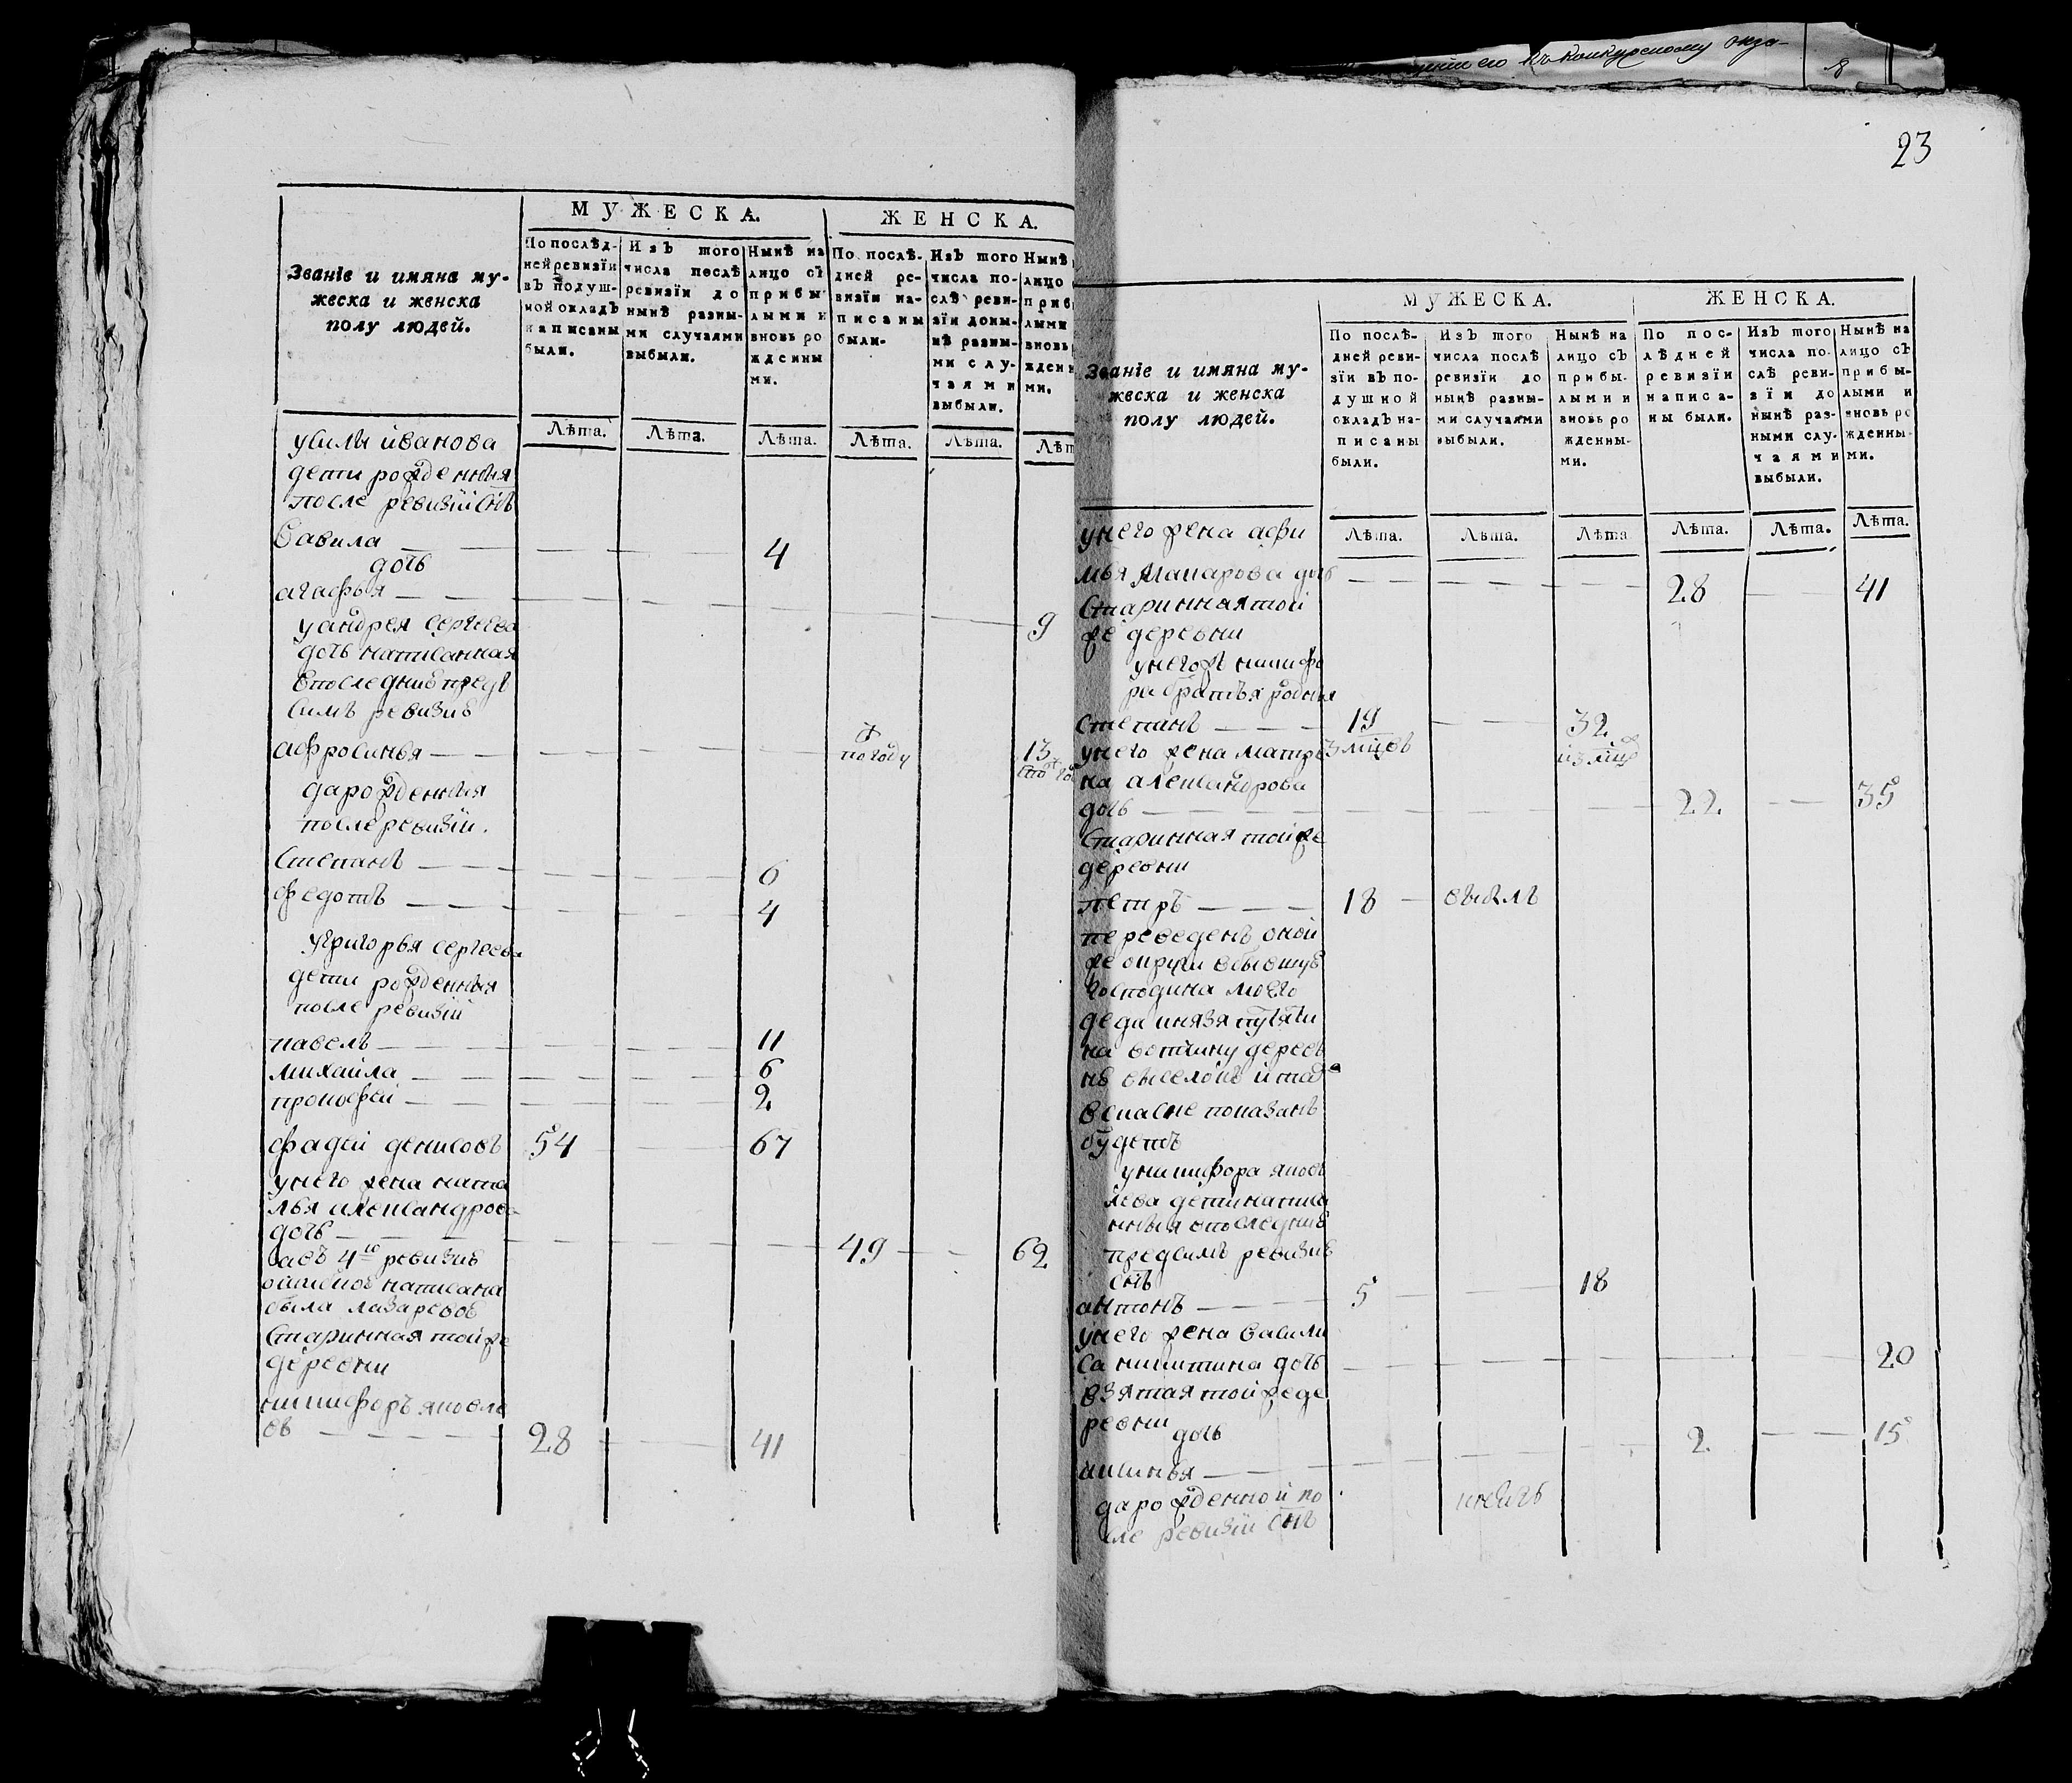 23
МУЖЕСКА.
ЖЕНСКА.
Званіе и имяна му-
жеска и женска
полу людей.
По послѣд-
ней ревизіи
въ подуш-
ной окладъ
написаны
были.
Изъ того
числа послѣ
ревизіи до
нынѣ разны-
ми случаями
выбыли.
Нынѣ на
лицо съ
прибы
лыми и
вновь ро
жденны
ми.
По послѣ-
дней ре-
визіи на-
писаны
были.
Изъ того
числа по-
слѣ реви-
зіи доны-
нѣ разны-
ми слу-
чаями
выбыли.
Нынѣ
лицо
приб
лыми
вновь
жденн
ми.
Лѣта. Лѣта. Лѣта. Лѣта. Лѣта. Лѣт
иванова
дети рожденныя
после ревизіи снъ
Савила 4
дочь
агафья 9
уандрея сергеева
дочь написанная
впоследней предъ
симъ ревизіе
афросинья полгоду 13
дарожденныя
после ревизіи.
Степанъ 6
федотъ 4
угригорья сергеева
дети рожденныя
после ревизіи
павелъ 11
михаила 6
прокофей 2
фадей денисовъ 54 67
унего жена ната
лья александрова
дочь 49 62
4 ревизіе
написана
была лазаревое
Старинная тойже
деревни
никифоръ яковле
въ 28 41
МУЖЕСКА.
ЖЕНСКА.
Званіе и имяна му-
жеска и женска
полу людей.
По послѣ-
дней реви-
зіи въ по-
душной
окладъ на-
писаны
были.
Изъ того
числа послѣ
ревизіи до
нынѣ разны-
ми случаями
выбыли.
Нынѣ на
лицо съ
прибы-
лыми и
вновь ро
жденны-
ми.
По пос-
лѣдней
ревизіи
написа-
ны были.
Изъ того
числа по-
слѣ реви-
зіи до
нынѣ раз-
ными слу-
чаями
выбыли.
Нынѣ на
лицо съ
прибы-
лыми и
вновь ро
жденны-
ми.
Лѣта. Лѣта. Лѣта Лѣта. Лѣта. Лѣта.
унего жена афи
мья Макарова дочь 28 41
Старинная той
же деревни
унегожъ никифо
ра братья родныя
степанъ 19 32
унего жена матре
на александрова
дочь 22 35
Старинная тойже
деревни
петръ 18 выбылъ
переведенъ оной
же округи вбывшуе
господина моего
деда князя путяти
на вотчину деревъ
не
показанъ
будетъ
уникифора яков
лева дети написа
нныя впоследней
предсимъ ревизіе
снъ
антонъ 5 18
унего жена васили
са никитина дочь 20
взятая тойже де
ревни
дочь 2 15
аксинья
дарожденной по
сле ревизіи снъ